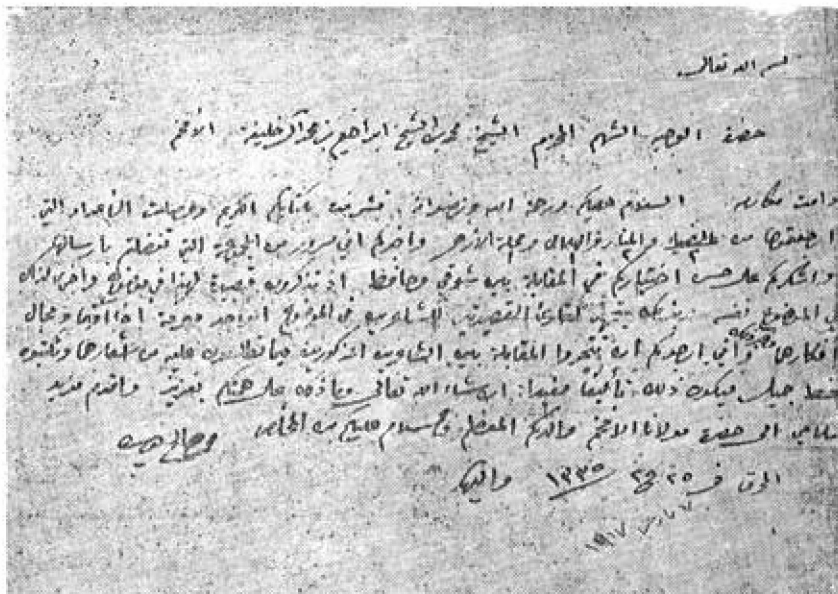 بسم الله تعالى
حضرة الوجيه الشهم الكريم الشيخ محمد بن الشيخ ابراهيم بن محمد آل خليفة الأفخم
دامت مكارمه السلام عليكم ورحمة الله ورضوانه تشرفت بكتابكم الكريم وصلت الأعداد التي
من والمنار والهلال ومجلة الأزهر وأخبركم اني مسرور من التي تفضلتم بارسالها
واشكركم على حسن اختياركم في المقابلة بين شوقي وحافظ اذ تذكرون قصيدة لهذا في موضوع واخرى لذاك
في الموضوع نفسه القصيدتين للشاعرين في الموضوع الواحد
افكارها واني ارجوكم ان تتحروا المقابلة بين الشاعرين المذكورين فيما تطلعون عليه من أشعارها وتكتبوه
بخط جميل فيكون ذلك تأليفا مفيدا ان شاء الله تعالى وما ذلك على همتكم بعزيز واقدم مزيد
سلامي الى حضرة مولانا الأفخم والدكم المعظم والسلام عليكم من المخلص
في ٢٥ ١٣٣٥
١٩١٧